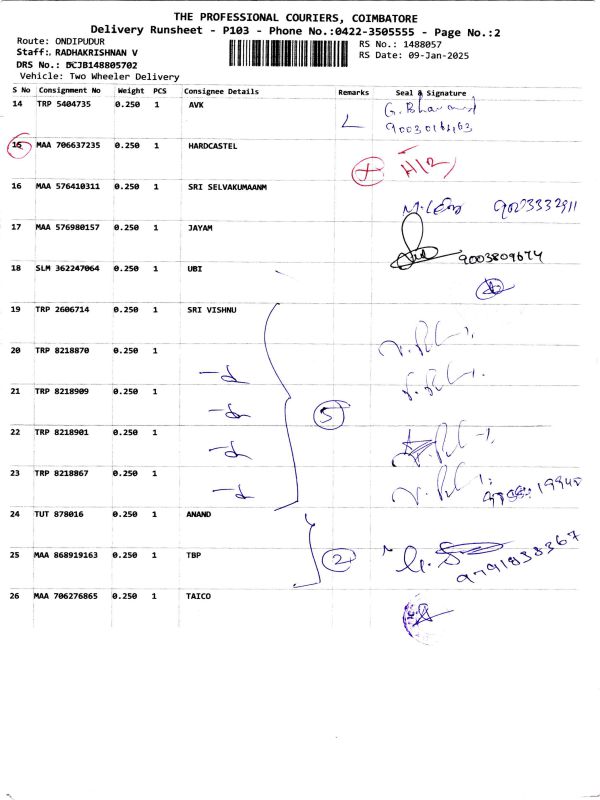 THE PROFESSIONAL COURIERS, COIMBATORE
Delivery Runsheet - P103 - Phone No.:0422-3505555 - Page No.:2
Route: ONDIPUDUR
RS No.: 1488057
Staff:. RADHAKRISHNAN V
RS Date: 09-Jan-2025
DRS No.: DCJB148805702
Vehicle: Two Wheeler Delivery
S No Consignment No Weight PCS Consignee Details Remarks Seal & Signature
14 TRP 5404735 0.250 1 AVK
15 MAA 706637235 0.250 1 HARDCASTEL
16 MAA 576410311 0.250 1 SRI SELVAKUMAANM
9023332911
17 MAA 576980157 0.250 1 JAYAM
9003809674
18 SLM 362247064 0.250 1 UBI
19 TRP 2606714 0.250 1 SRI VISHNU
20 TRP 8218870 0.250 1
-d
21 TRP 8218909 0.250 1
-d
5
22 TRP 8218901 0.250 1
-d
23 TRP 8218867 0.250 1
-d
24 TUT 878016 0.250 1 ANAND
25 MAA 868919163 0.250 1 TBP
2
9791838367
26 MAA 706276865 0.250 1 TAICO